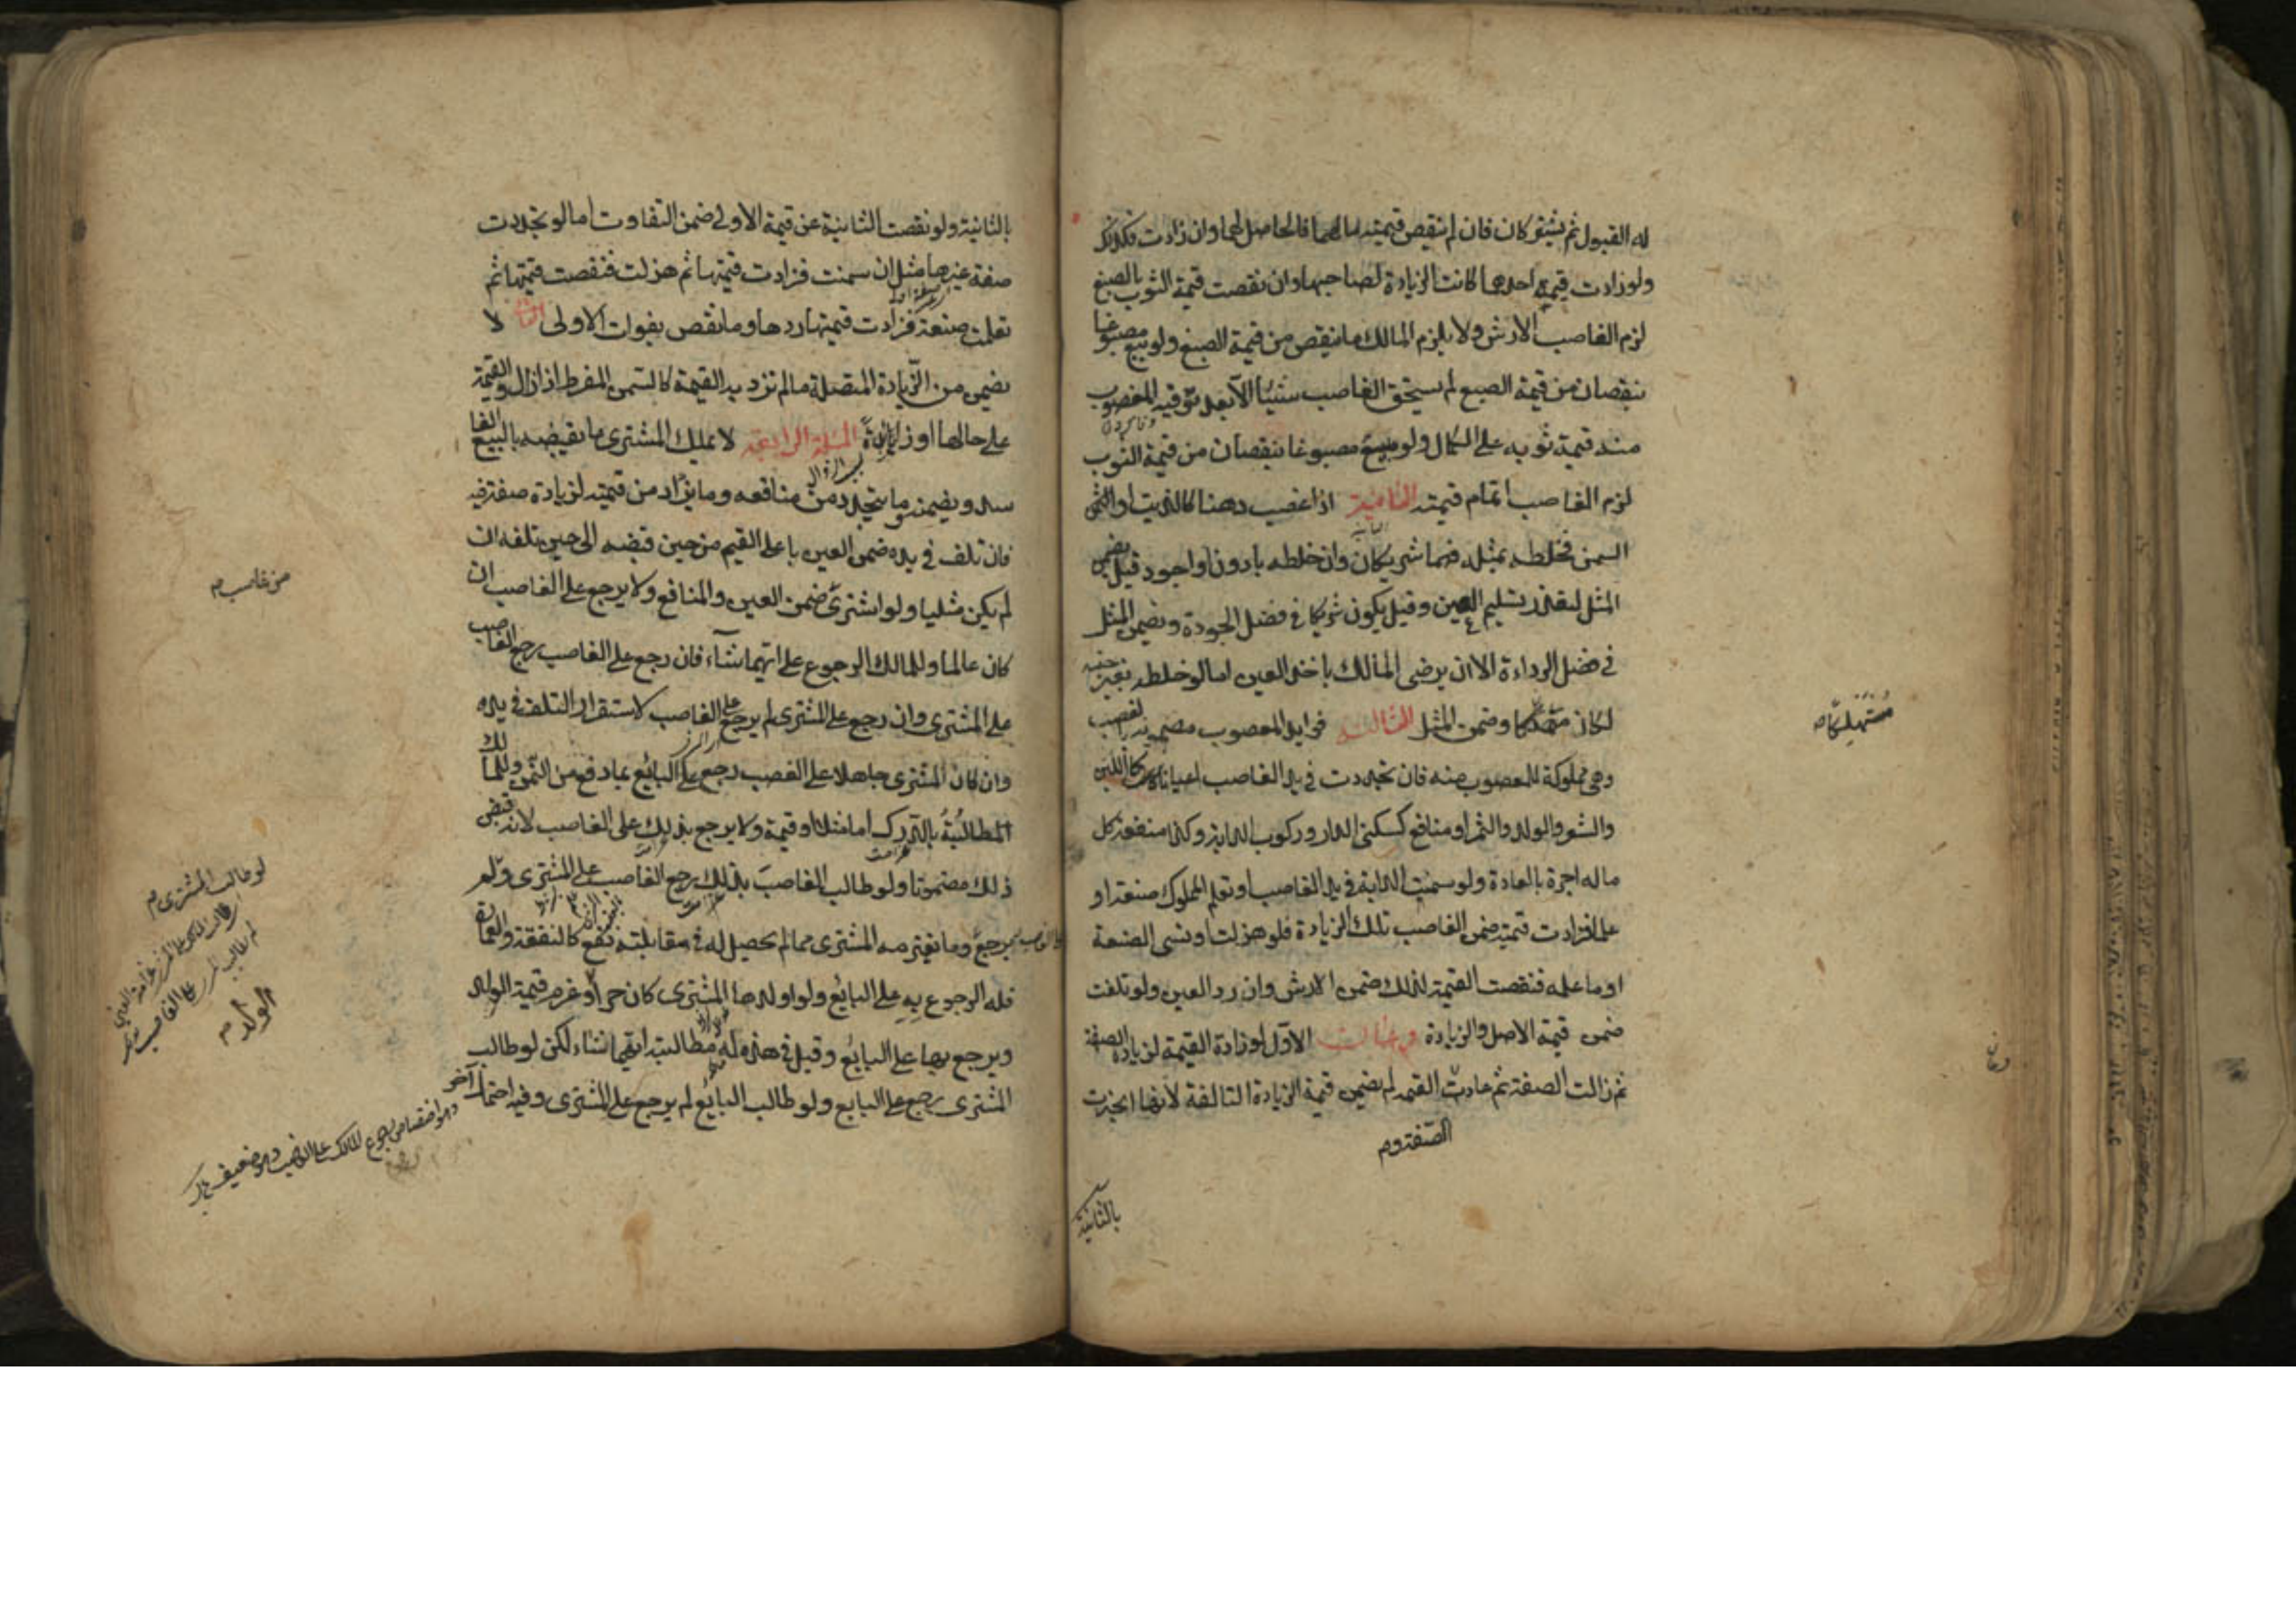 له القبول ثم يشتركان فان لم ينقص قيمة مالهما فالحاصل لهما وان زادت فكذلك
ولو زادت قيمة احدهما كانت الزيادة لصاحبها وان نقصت قيمة الثوب بالصبغ
لزم الغاصب الارش ولا يلزم المالك ما ينقص من قيمة الصبغ ولو بيع مصبوغا
بنقصان من قيمة الصبغ لم يستحق الغاصب شيئا الا بعد توفية المغصوب
منه قيمة ثوبه على الكمال ولو بيع مصبوغا بنقصان من قيمة الثوب
لزم الغاصب اتمام قيمته الثانية اذا غصب دهنا كالزيت او
السمن فخلطه بمثله فهما شريكان وان خلطه بادون او اجود قيل يضمن
المثل لتعذر تسليم العين وقيل يكون شريكا في فضل الجودة ويضمن المثل
في فضل الرداءة الا ان يرضى المالك باخذ العين اما لو خلطه بغير جنسه
لكان وضمن المثل الثالثة فوايد المغصوب مضمونة بالغصب
وهي مملوكة للمغصوب منه فان تجددت في يد الغاصب اعيانا كانت كاللبن
والشعر والولد والثمر او منافع كسكنى الدار وركوب الدابة وكذا منفعة كل
ما له اجرة بالعادة ولو سمنت الدابة في يد الغاصب او تعلم المملوك صنعة او
علما فزادت قيمته ضمن الغاصب تلك الزيادة فلو هزلت او نسى الصنعة
او ما علمه فنقصت القيمة لذلك ضمن الارش وان رد العين ولو تلفت
ضمن قيمة الاصل والزيادة فرعان الاول لو زادة القيمة لزيادة الصفة
ثم زالت الصفة ثم عادت القيمة لم يضمن قيمة الزيادة التالفة لانها انجبرت
الصفة و م
بالثانية
مستهلكا
بالثانية ولو نقصت الثانية عن قيمة الاولى ضمن التفاوت اما لو تجددت
صفة غيرها مثل ان سمنت فزادت قيمتها ثم هزلت فنقصت قيمتها ثم
تعلمت صنعة فزادت قيمتها ردها وما نقص بفوات الاولى الثاني لا
يضمن من الزيادة المتصلة ما لم تزد به القيمة كالسمن المفرط اذا زال والقيمة
على حالها او زايدة المسئلة الرابعة لا يملك المشترى ما يقبضه بالبيع الفا
سد ويضمنه وما يتجدد من منافعه وما يزاد من قيمته لزيادة صفة فيه
فان تلف في يده ضمن العين باعلى القيم من حين قبضه الى حين تلفه ان
لم يكن مثليا ولو اشترى ضمن العين والمنافع ولا يرجع على الغاصب ان
كان عالما وللمالك الرجوع على ايهما شاء فان رجع على الغاصب رجع الغاصب
على المشترى وان رجع على المشترى لم يرجع على الغاصب لاستقرار التلف في يده
وان كان المشترى جاهلا على الغصب رجع على البائع بما دفع من الثمن وللمالك
المطالبة بالدرك اما مثلا او قيمة ولا يرجع بذلك على الغاصب لانه قبض
ذلك مضمونا ولو طالب الغاصب بذلك رجع الغاصب على المشترى ولم
يرجع وما يغترمه المشترى مما لم يحصل له في مقابلته نفع كالنفقة والعمارة
فله الرجوع به على البائع ولو اولدها المشترى كان حرا وغرم قيمة الولد
ويرجع بها على البائع وقيل في هذه له مطالبة ايهما شاء لكن لو طالب
المشترى رجع على البايع ولو طالب البائع لم يرجع على المشترى وفيه احتمال آخر
من غاصب م
لو طالب المشترى م
الولد م